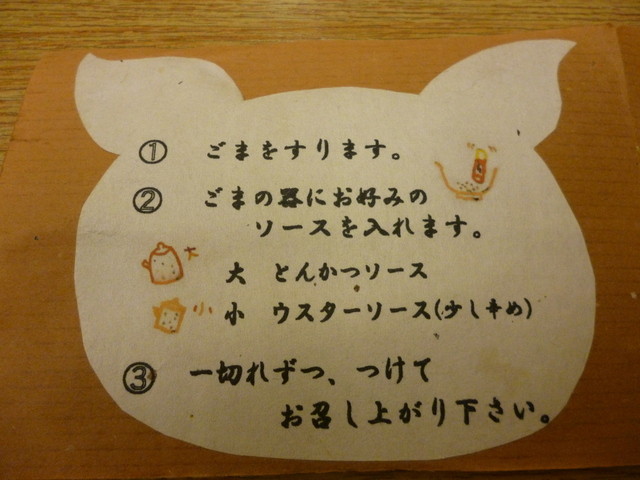 ① ごまをすります。
② ごまの器にお好みの
ソースを入れます。
大 大 とんかつソース
小 小 ウスターソース(少し辛め)
③ 一切れずつ、つけて
お召し上がり下さい。